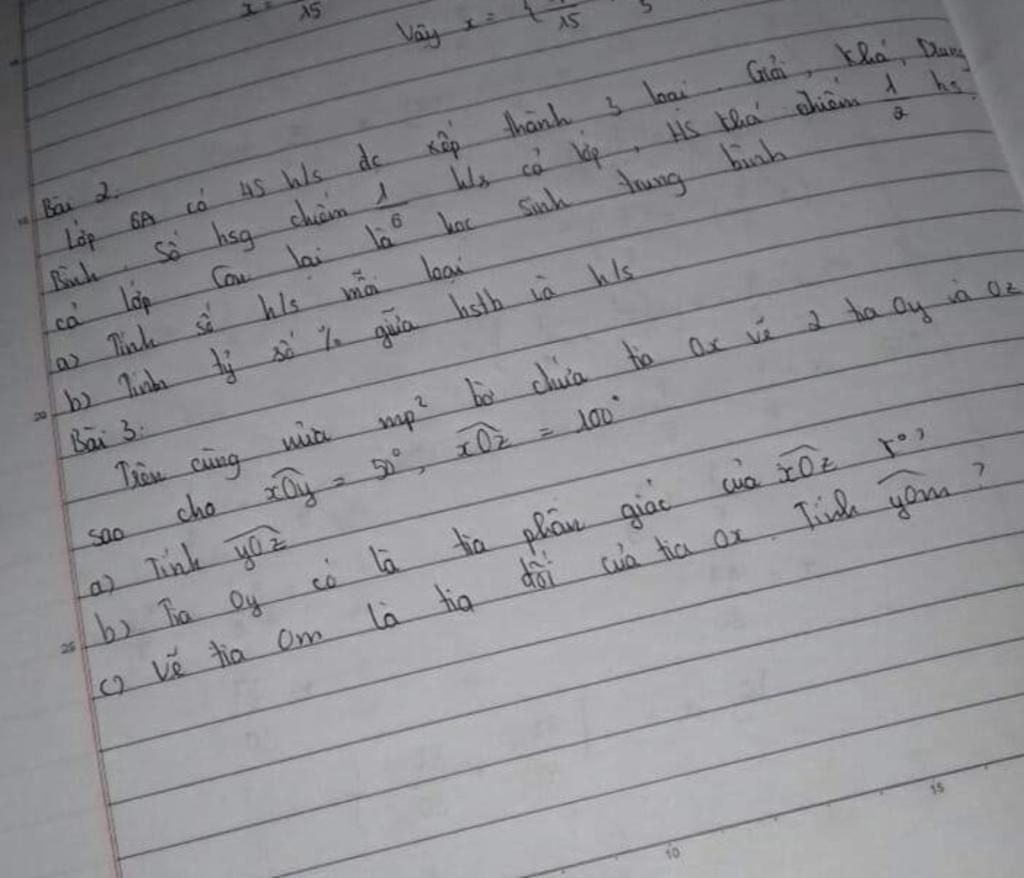 x = 15
Vậy x = { 15 5
Bài 2:
Lớp 6A có 45 h/s dc xếp thành 3 loại. Giỏi, Khá, Trung
Bình. Số hsg chiếm 1/6 h/s cả lớp, HS khá chiếm 1/2 hs
cả lớp Còn lại là học sinh trung bình
a) Tính số h/s mỗi loại
b) Tính tỷ số % giữa hstb và h/s
Bài 3:
Trên cùng nửa mp² bờ chứa tia Ox vẽ 2 tia Oy và Oz
sao cho xOy = 50°, xOz = 100°
a) Tính yOz
b) Tia Oy có là tia phân giác của xOz ko?
c) Vẽ tia Om là tia đối của tia Ox. Tính yOm ?
20
25
10
15